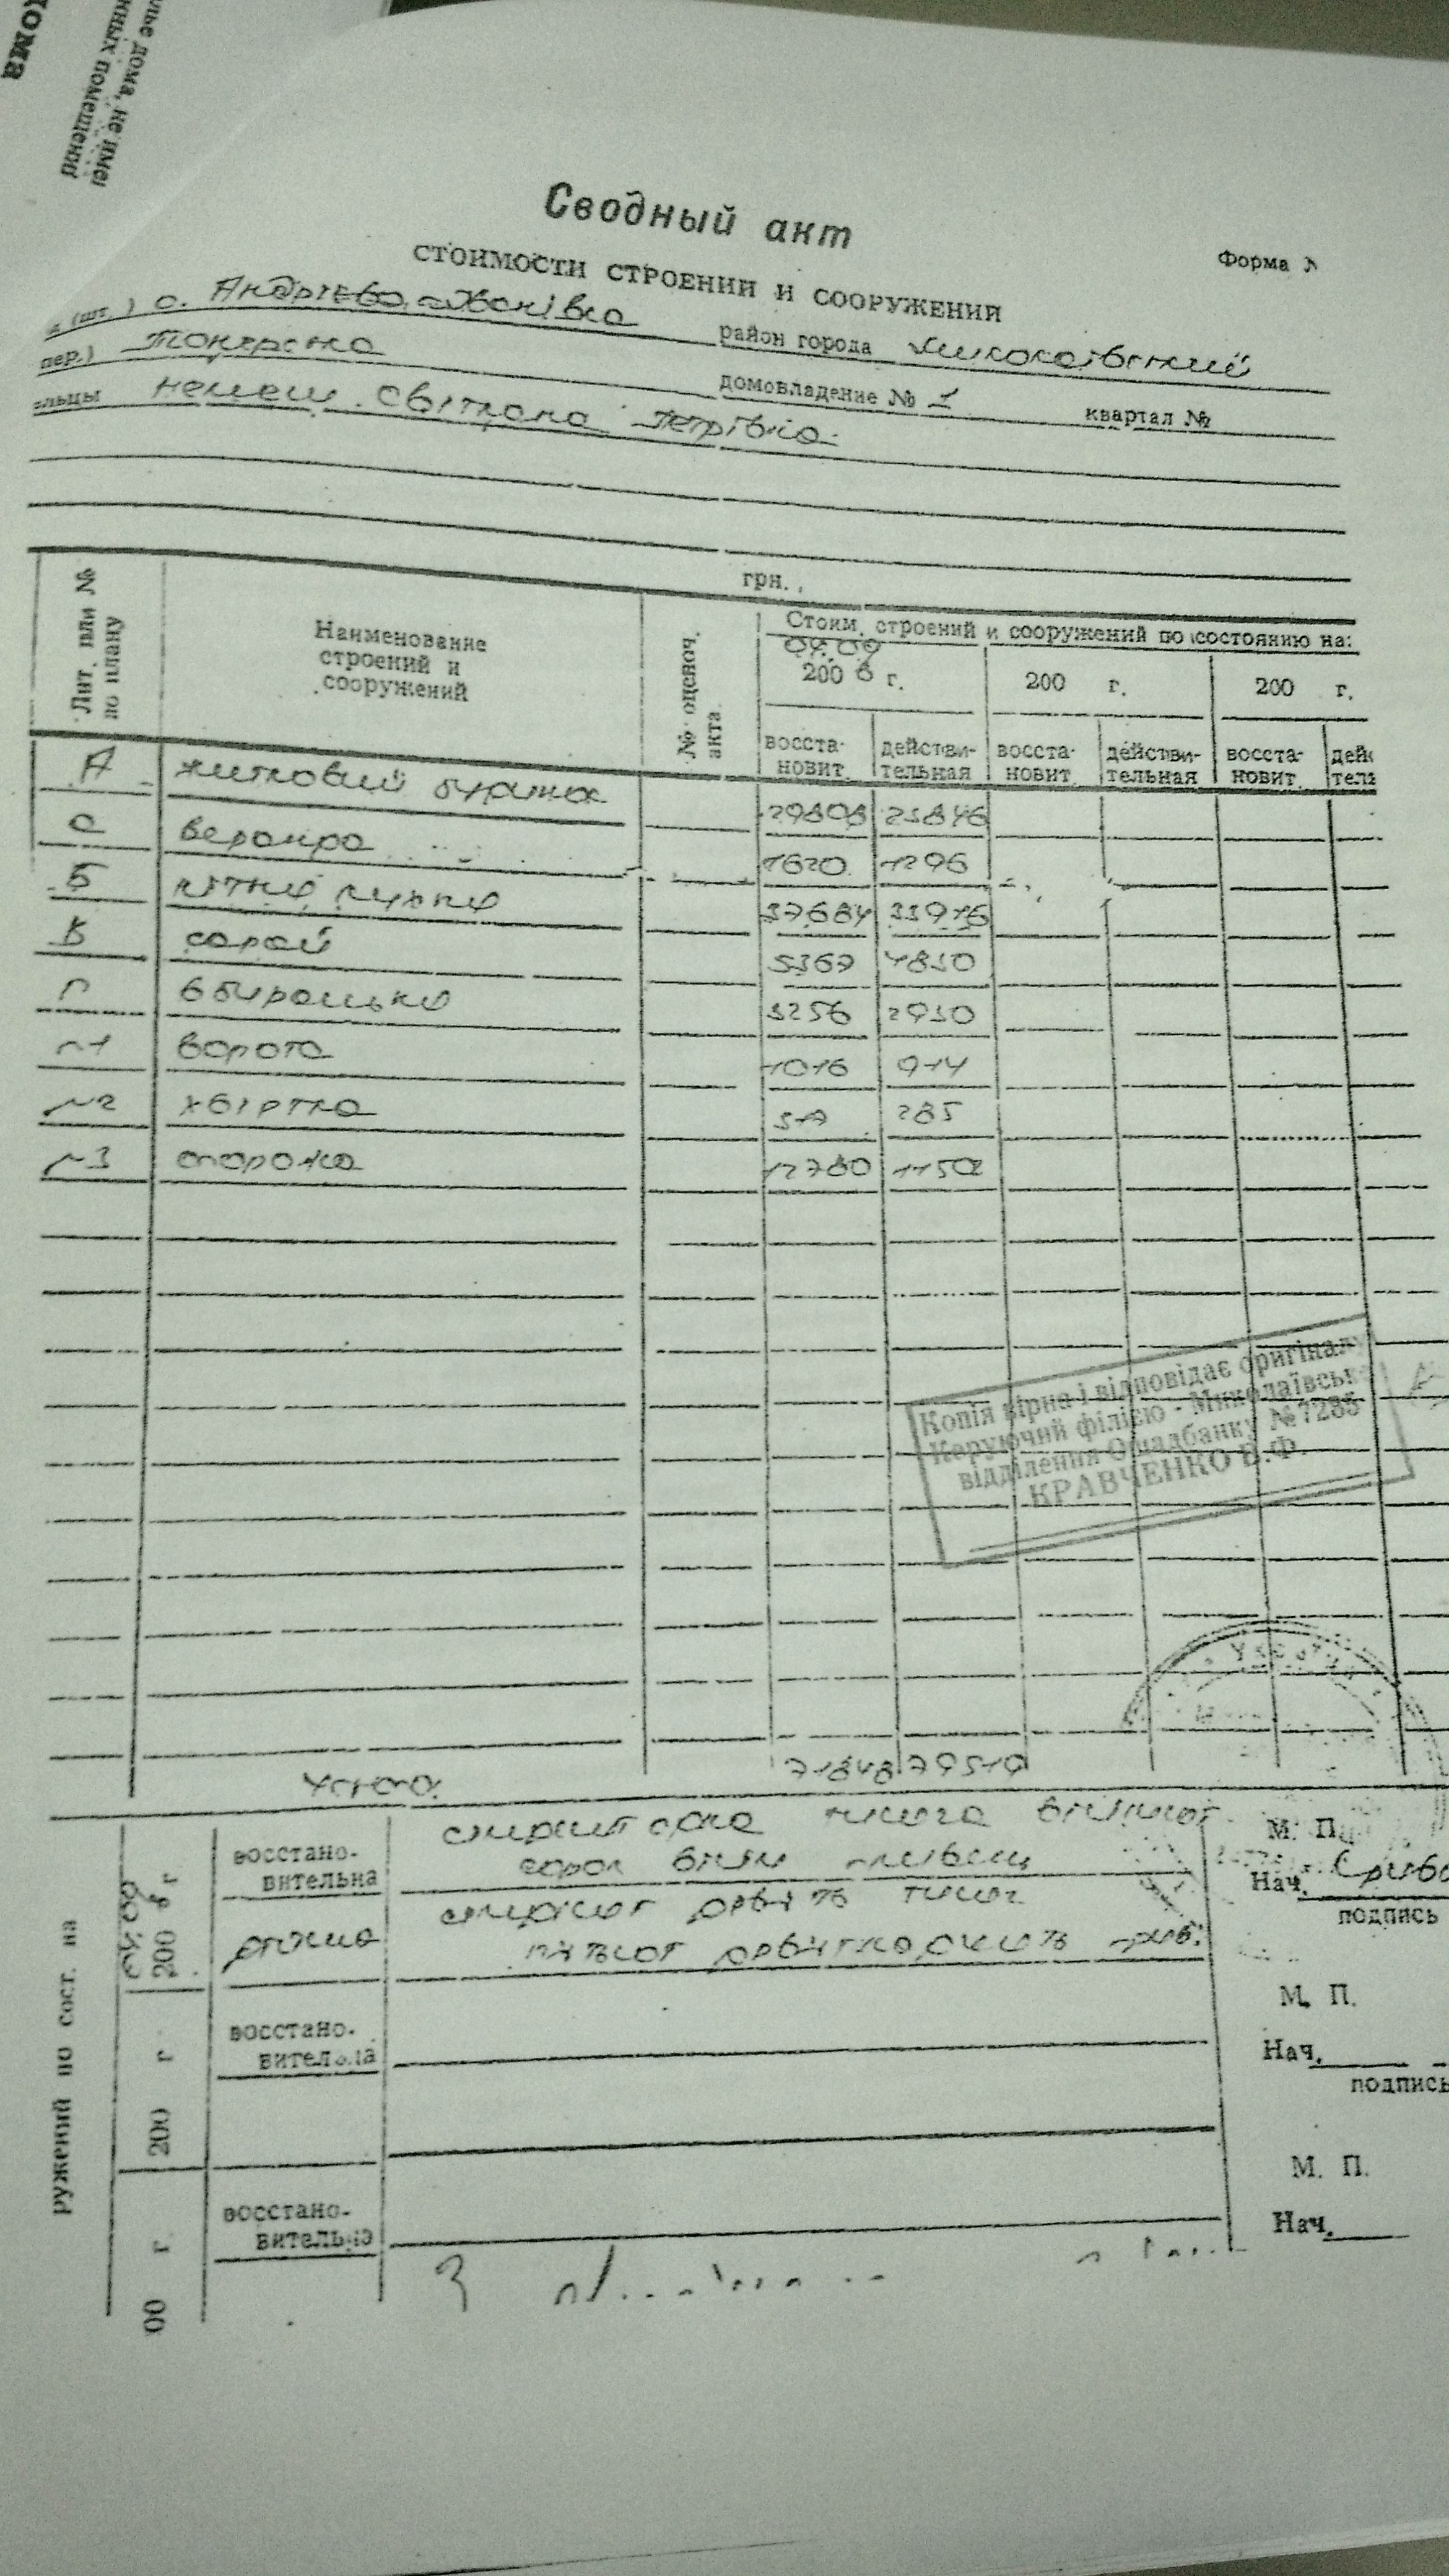 дома
лье дома, не имеі
нных помещений
Сводный акт
Форма
СТОИМОСТИ СТРОЕНИЙ И СООРУЖЕНИЙ
(шт.) с. Андрієво-Іванівка район города Миколаївський
пер.) домовладение № 1 квартал №
ельцы Немеш Світлана Петрівна
грн.
Лит. или № по плану
Наименование строений и сооружений
№ оценоч. акта
Стоим. строений и сооружений по состоянию на:
04.09
200 8 г. 200 г. 200 г.
восста- действи- восста- действи- восста- дей
новит. тельная новит. тельная новит. тель
А житловий будинок 29808 23846
а веранда 1620 1296
Б літня кухня 37684 33916
В сарай 5367 4830
Г вбиральня 3256 2930
№1 ворота 1016 914
№2 хвіртка 317 285
№3 огорожа 12780 11502
Копія вірна і відповідає оригіналу
Керуючий філією - Миколаївськ
відділення Ощадбанку №7285
КРАВЧЕНКО В.Ф.
Україна
Усього: 71848 79519
ружений по сост. на
200 8 г
восстано-
вительна
сімдесят одна тисяча вісімсот
сорок вісім гривень
М. П.
Нач.
подпись
дійсна
сімдесят дев'ять тисяч
п'ятсот дев'ятнадцять грив.
200 г
восстано-
вительна
М. П.
Нач.
подпись
00 г.
восстано-
вительна
М. П.
Нач.